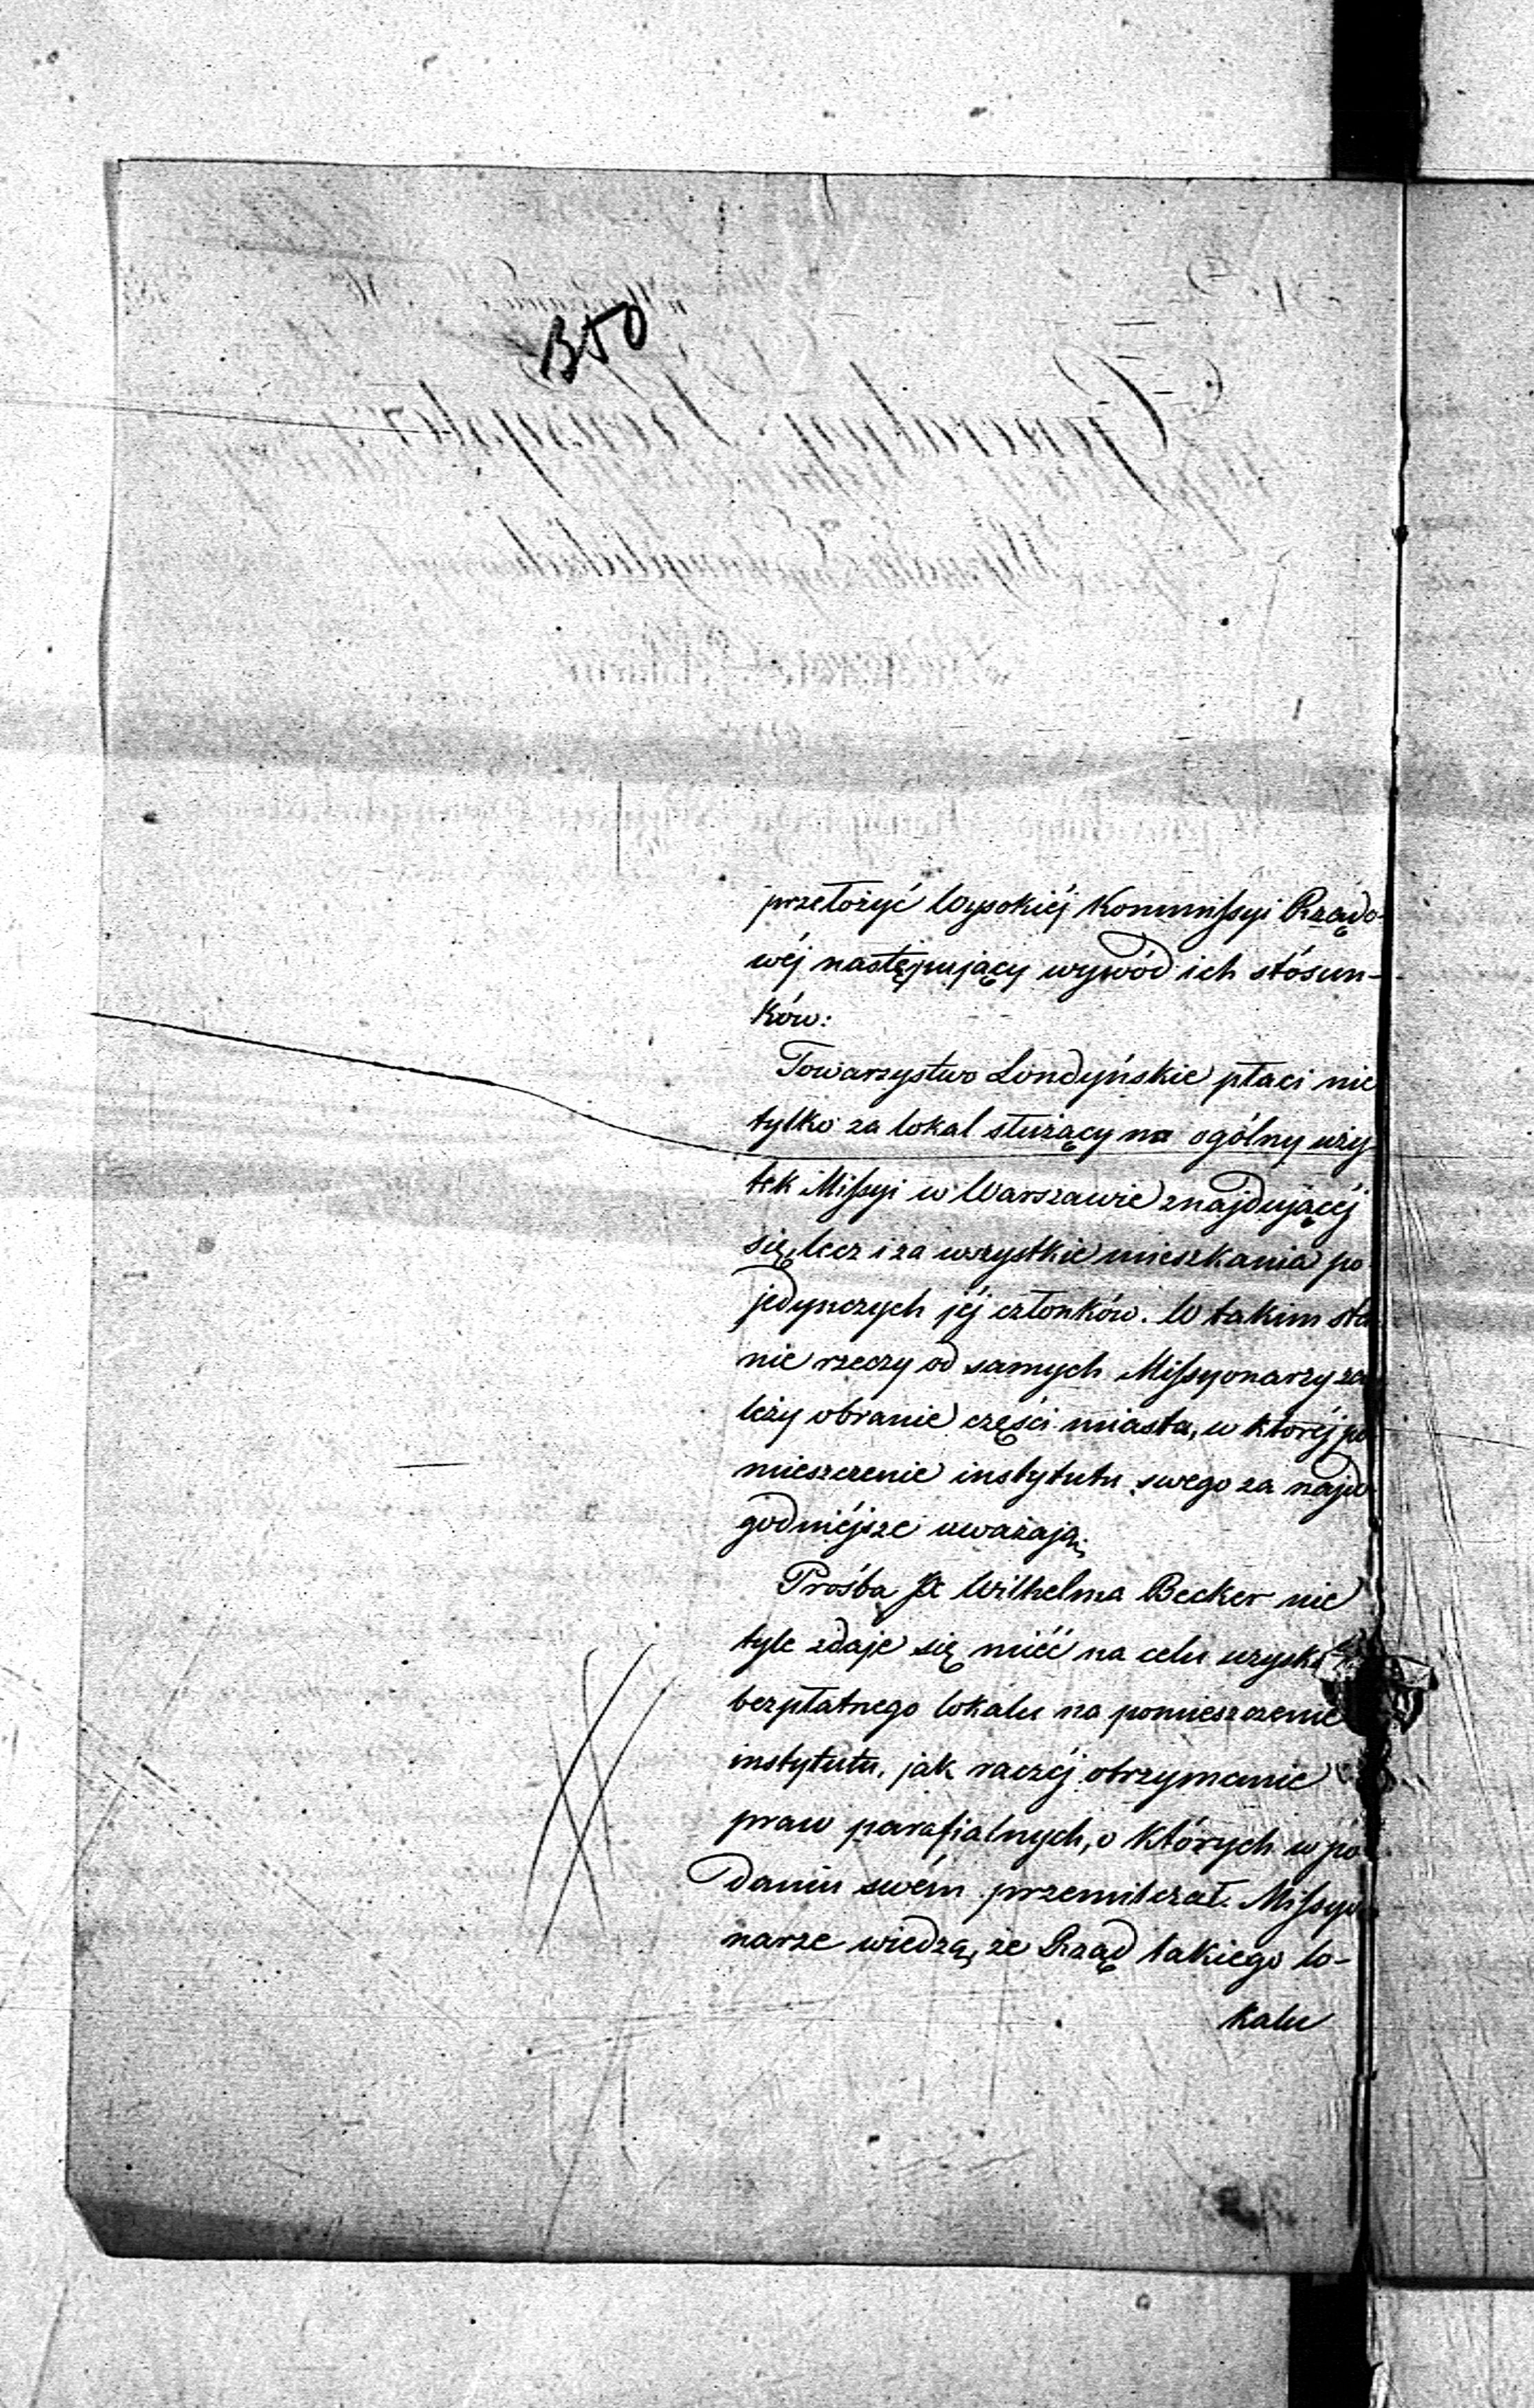 350
przełożyć Wysokiéj Kommissyi Rządo-
wéj następujący wywód ich stósun-
ków:
Towarzystwo Londyńskie płaci nie
tylko za lokal służący na ogólny uży
tek Missyi w Warszawie znajdującéj
się, lecz i za wszystkie mieszkania po
jedynczych jéj członków. W takim sta
nie rzeczy od samych Missyonarzy za
leży obranie części miasta, w któréj po
mieszczenie instytutu swego za najdo
godniéjsze uważają.
Prośba Wilhelma Becker nie
tyle zdaje się miéć na celu uzyska
bezpłatnego lokalu na pomieszczenie
instytutu, jak raczéj otrzymanie
praw parafialnych, o których w po
daniu swém przemilczał. Missyo
narze wiedzą, że Rząd takiego lo-
kalu